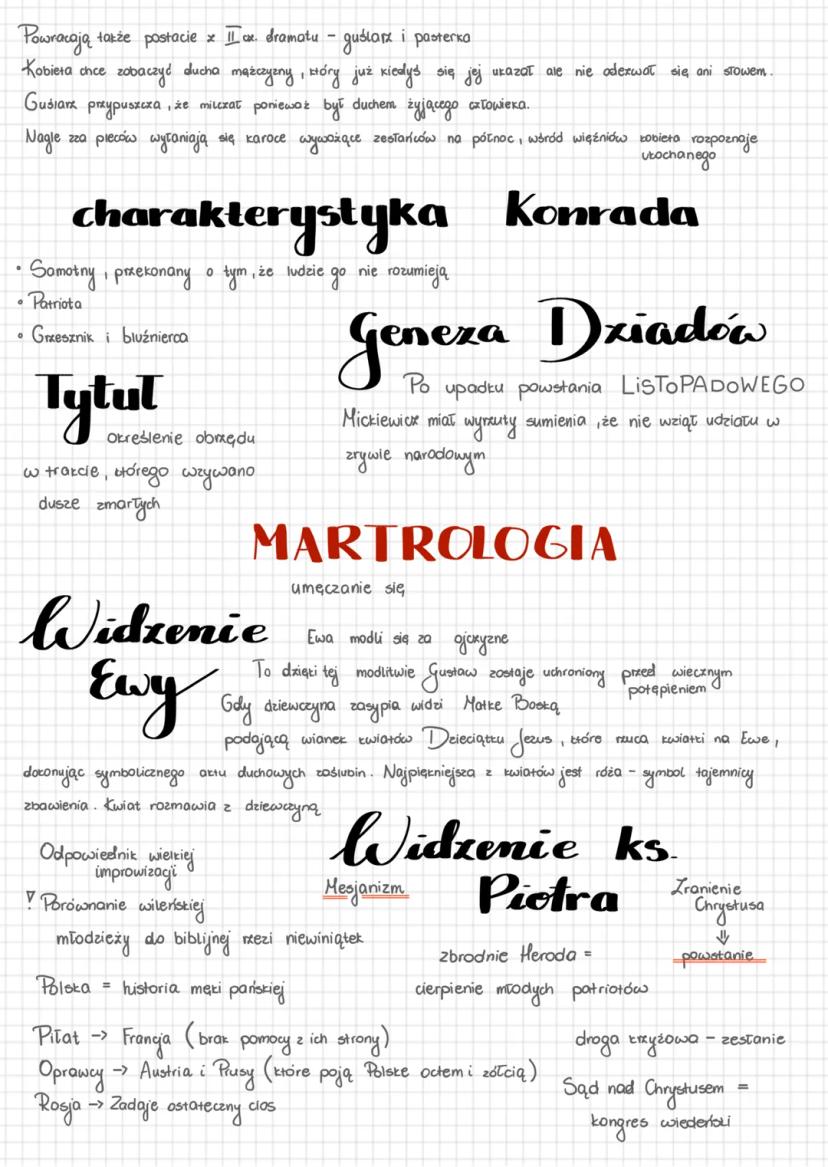 Powracają także postacie z II cz. dramatu - guślarz i pasterka
Kobieta chce zobaczyć ducha mężczyzny, który już kiedyś się jej ukazał ale nie odezwał się ani słowem.
Guślarz przypuszcza, że milczał ponieważ był duchem żyjącego człowieka.
Nagle zza pleców wyłaniają się karoce wywożące zesłańców na północ, wśród więźniów kobieta rozpoznaje
ukochanego
charakterystyka Konrada
• Samotny, przekonany o tym, że ludzie go nie rozumieją
• Patriota
• Grzesznik i bluźnierca
Geneza Dziadów
Po upadku powstania LiSTOPADOWEGO
Mickiewicz miał wyrzuty sumienia, że nie wziął udziału w
zrywie narodowym
Tytuł
określenie obrzędu
w trakcie, którego wzywano
dusze zmarłych
MARTROLOGIA
umęczanie się
Widzenie
Ewy
Ewa modli się za ojczyznę
To dzięki tej modlitwie Gustaw zostaje uchroniony przed wiecznym
potępieniem
Gdy dziewczyna zasypia widzi Matkę Boską
podającą wianek kwiatów Dzieciątku Jezus, które rzuca kwiatki na Ewę,
dokonując symbolicznego aktu duchowych zaślubin. Najpiękniejsza z kwiatów jest róża - symbol tajemnicy
zbawienia. Kwiat rozmawia z dziewczyną
Widzenie ks.
Piotra
Odpowiednik wielkiej
improwizacji
! Porównanie wileńskiej
młodzieży do biblijnej rzezi niewiniątek
Mesjanizm
Zranienie
Chrystusa
⇓
powstanie
zbrodnie Heroda =
cierpienie młodych patriotów
Polska = historia męki pańskiej
Piłat -> Francja (brak pomocy z ich strony)
Oprawcy -> Austria i Prusy (które poją Polskę octem i żółcią)
Rosja -> Zadaje ostateczny cios
droga krzyżowa - zesłanie
Sąd nad Chrystusem =
kongres wiedeński